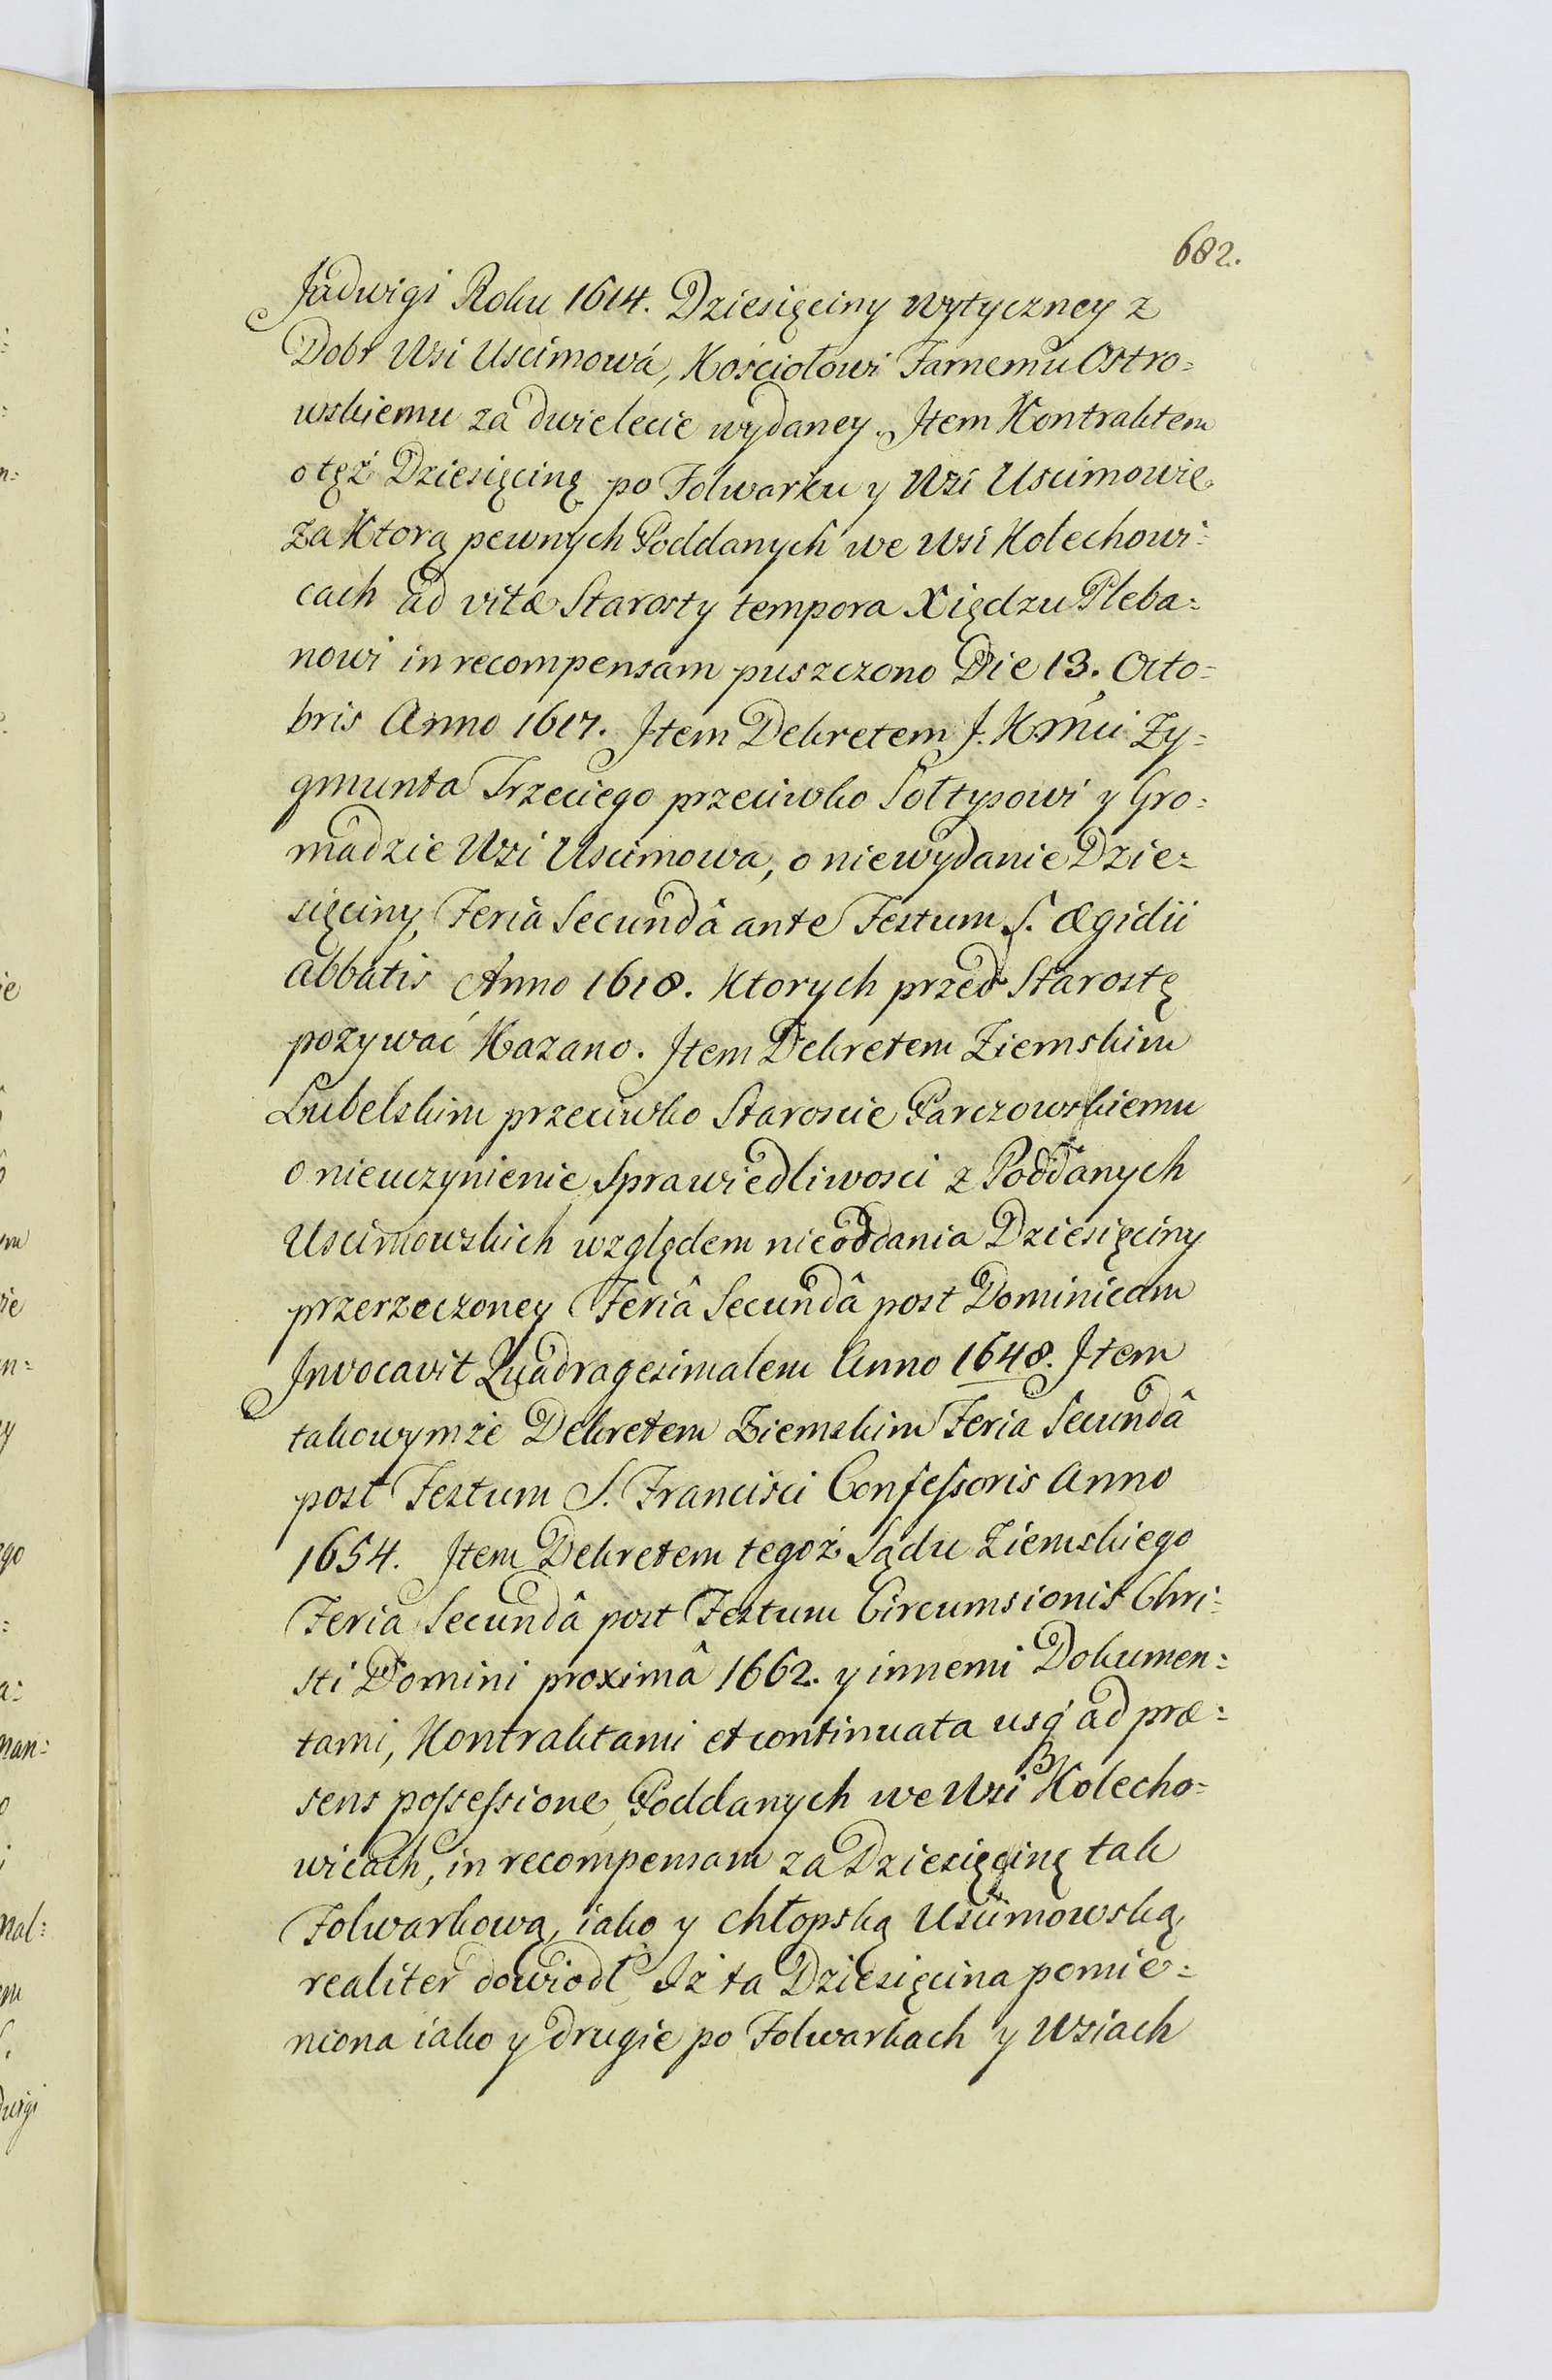 682.
Jadwigi Roku 1614. Dziesięciny wytyczney z
Dobr Wsi Uscimowá, Kościołowi Farnemu Ostro=
wskiemu za dwielecie wydaney. Item Kontraktem
o tęż Dziesięcinę po Folwarku y Wsi Uscimowie
za Ktorą pewnych Poddanych we Wsi Kolechowi=
cach ad vitæ Starosty tempora Xiędzu Pleba=
nowi in recompensam puszczono Die 13. Octo=
bris Anno 1617. Item Dekretem J. Kmći Zy=
gmunta Trzeciego przeciwko Sołtysowi y Gro=
madzie Wsi Uscimowa, o niewydanie Dzie=
sięciny, Feria Secundâ ante Festum S. Ægidii
abbatis Anno 1618. Ktorych przed Starostę
pozywać Kazano. Item Dekretem Ziemskim
Lubelskim przeciwko Staroscie Parczowskiemu
o nieuczynienie Sprawiedliwosci z Poddanych
Uscimowskich względem nieoddania Dziesięciny
przerzeczoney Feriâ Secundâ post Dominicam
Invocavit Quadragesimalem Anno 1648. Item
takowymże Dekretem Ziemskim Feria Secundâ
post Festum S. Francisci Confessoris Anno
1654. Item Dekretem tegoż Sądu Ziemskiego
Feria Secundâ post Festum Circumsionis Chri=
sti Domini proximâ 1662. y innemi Dokumen=
tami, Kontraktami et continuata usq́ ad præ=
sens possessione, Poddanych we Wsi Kolecho=
wicach, in recompensam za Dziesięcinę tak
Folwarkową, iako y chłopską Uscimowską,
realiter dowiodł, Iż ta Dziesięcina pomie=
niona iako y drugie po Folwarkach y Wsiach